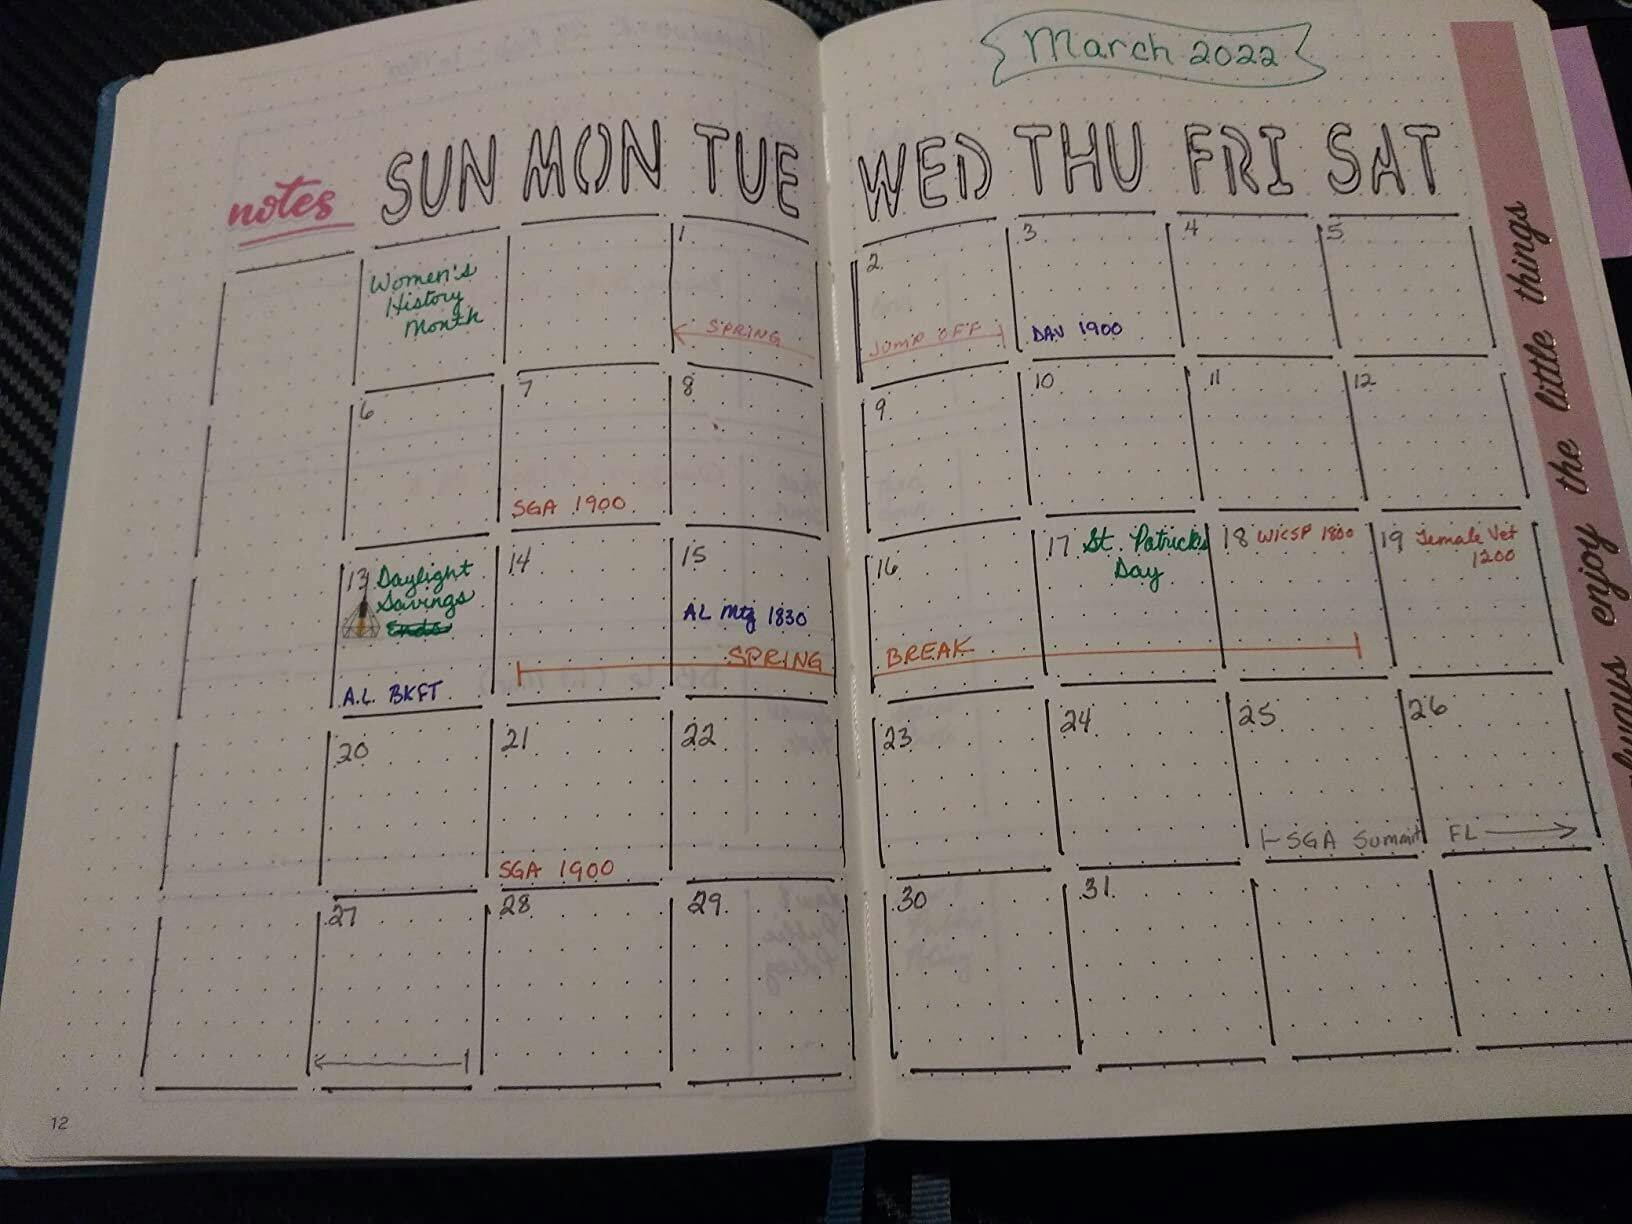 March 2022
notes
SUN MON TUE WED THU FRI SAT
Women's
History
Month
1
SPRING
2
JUMP OFF
3
DAV 1900
4
5
6
7
SGA 1900
8
9
10
11
12
13 Daylight
Savings
Ends
A.L. BKFT
14
15
AL Mtg 1830
16
17 St. Patricks
Day
18 WICSP 1800
19 Female Vet
1200
SPRING BREAK
20
21
SGA 1900
22
23
24
25
SGA Summit
26
FL
27
28
29
30
31
enjoy the little things
12